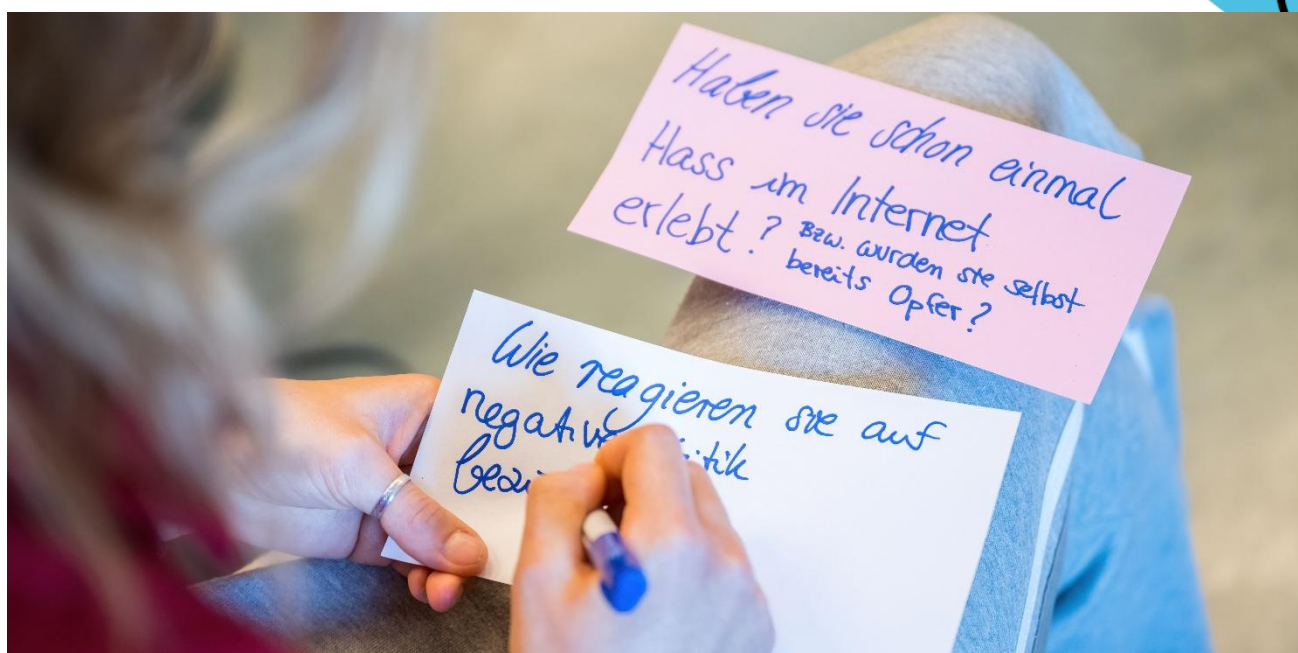 Haben sie schon einmal
Hass im Internet
erlebt? Bzw. wurden sie selbst
bereits Opfer?
Wie reagieren sie auf